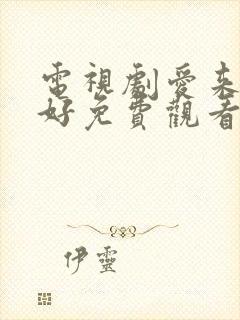 電視劇愛來
好免費觀看
伊靈